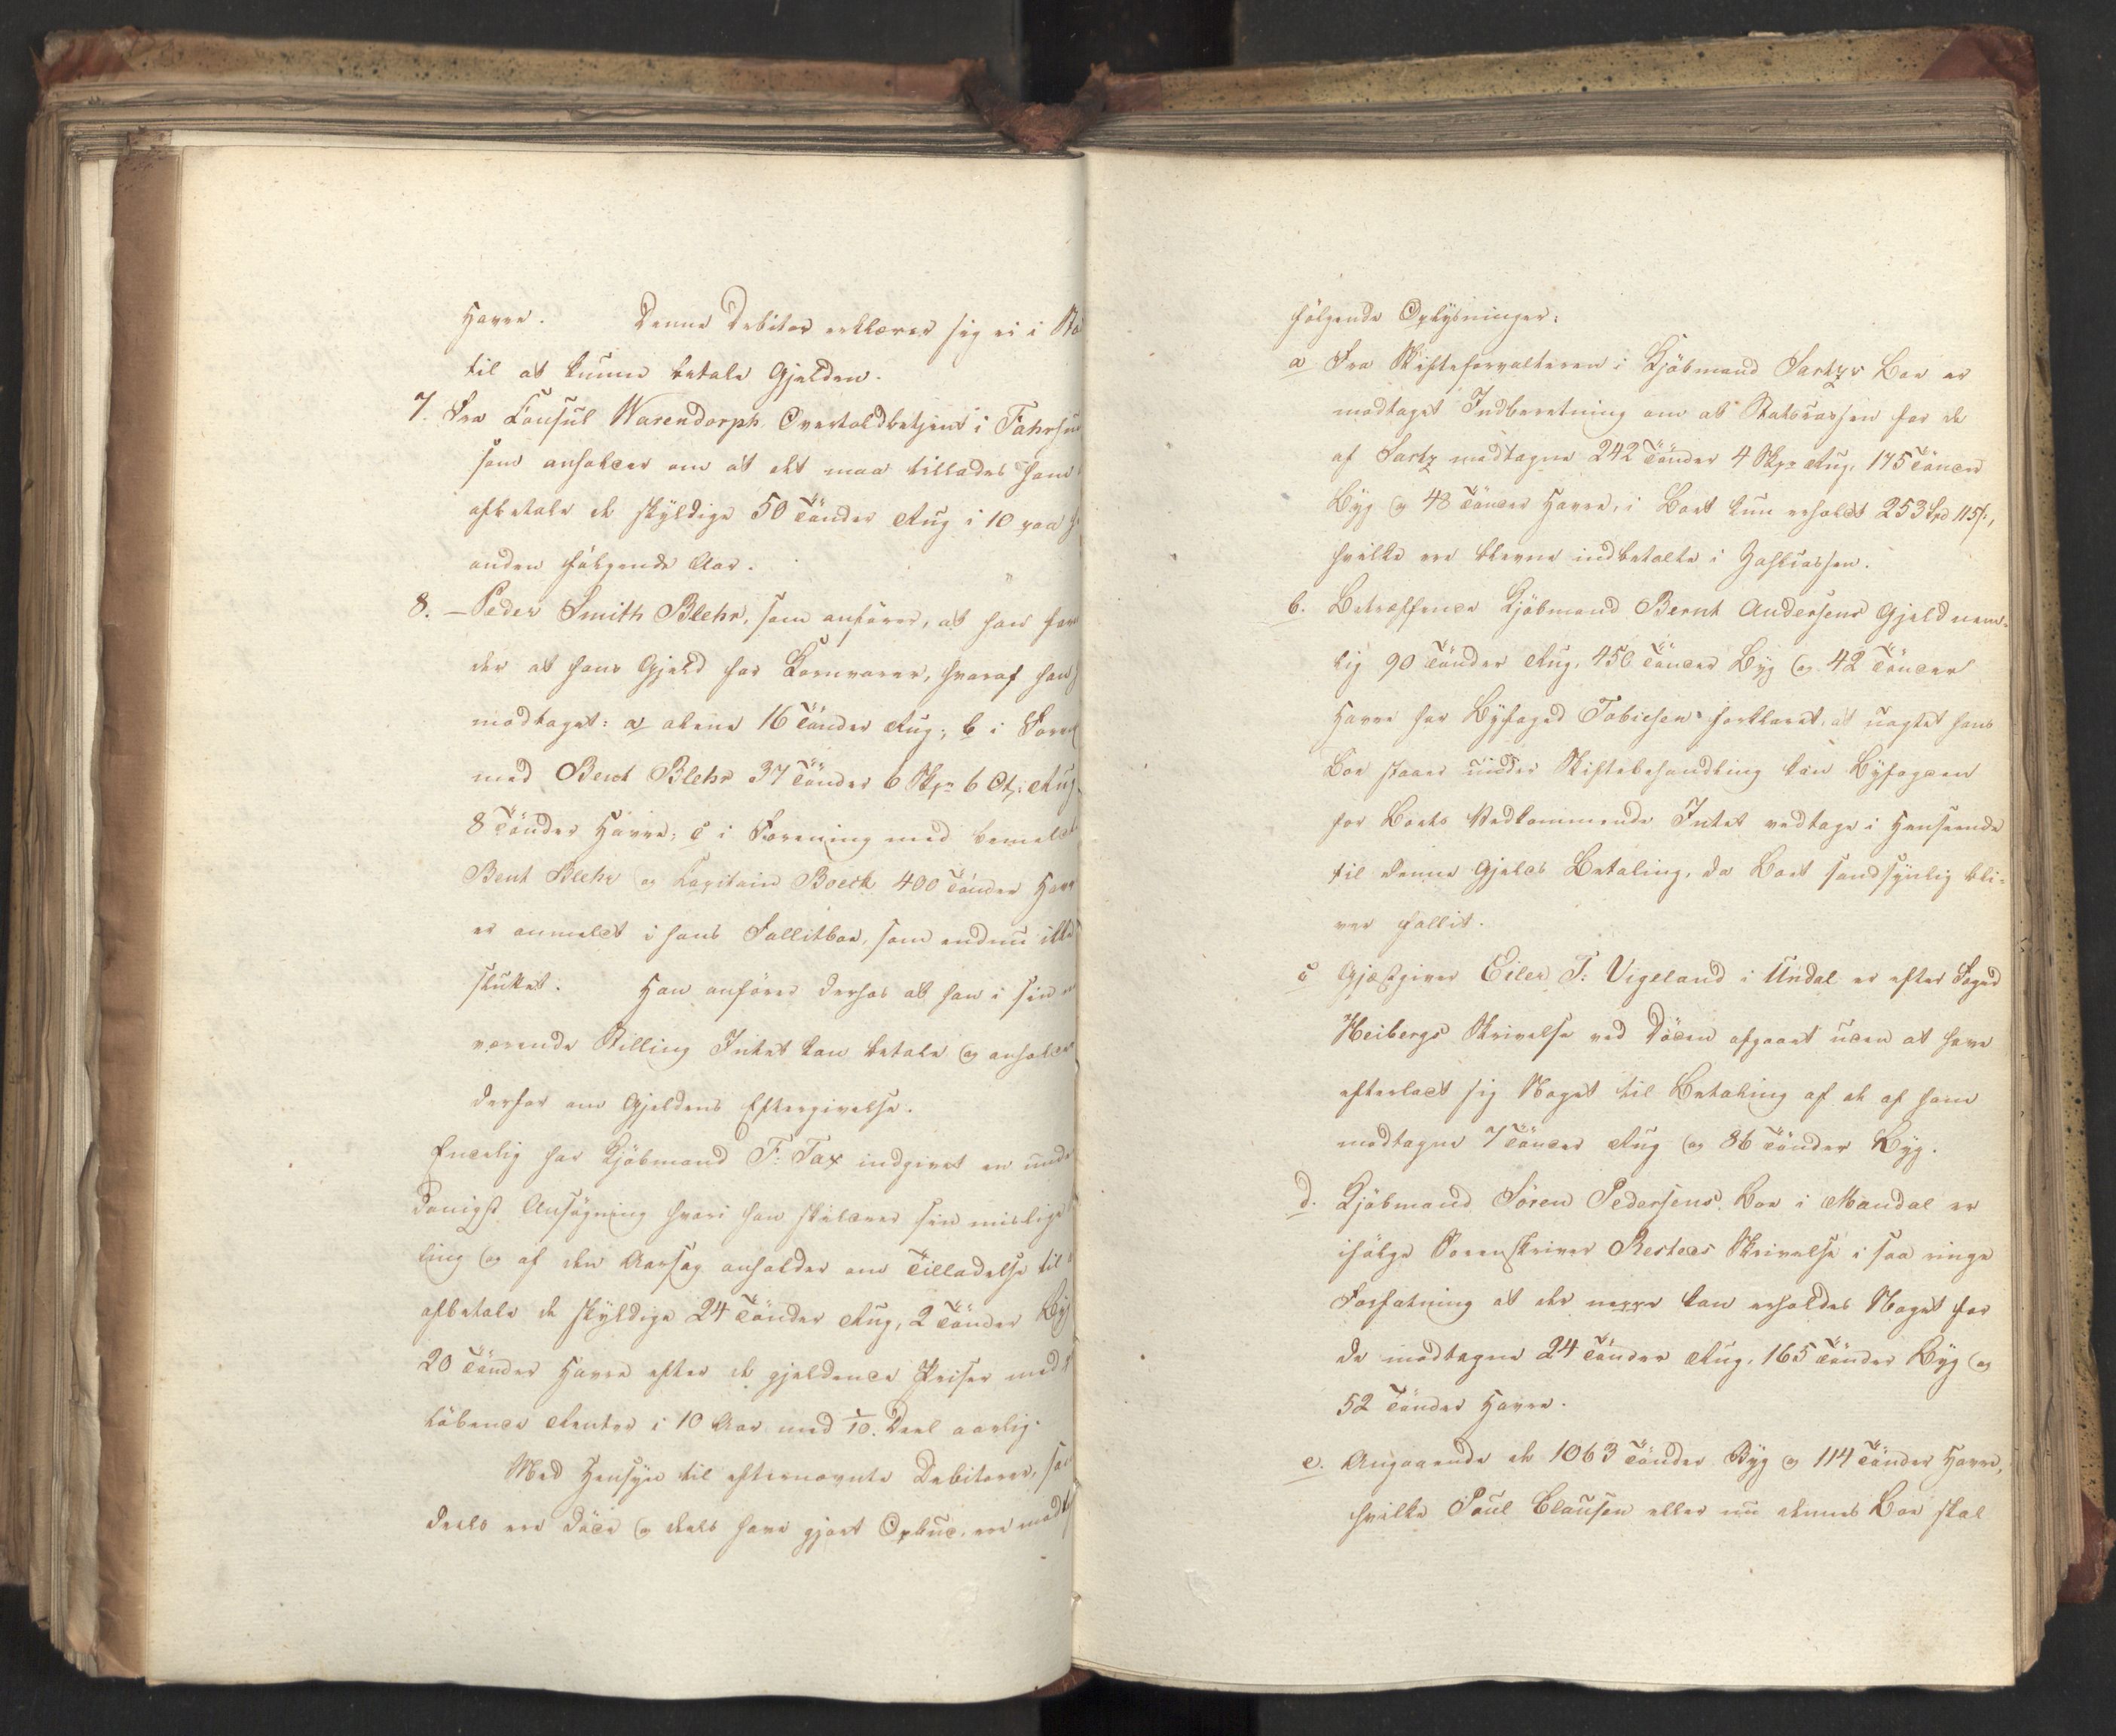 Havre. Denne Debitor erklærer sig ei i
til at kunne betale Gjelden.
7. Fra Consul Warendorph, Overtoldbetjent i Fahrsu
som anholder om at det maa tillades ham
afbetale de skyldige 50 Tönder Rug i 10 paa
anden fölgende Aar.
8. – Peder Smith Blehr, som anförer, at han
der at hans Gjeld for Kornvarer, hvoraf han
modtaget: a alene 16 Tönder Rug; b i Foren
med Bent Blehr 37 Tönder 6 Skp 6 Ot: Rug
8 Tönder Havre; c i Forening med bemeldt
Bent Blehr og Capitain Boeck 400 Tönder Havr
er anmeldt i hans Fallitboe, som endnu ikke
sluttet. Han anförer derhos at han i sin
værende Stilling Intet kan betale og anholder
derfor om Gjeldens Eftergivelse.
Endelig har Kjöbmand F: Tax indgivet en unde
danigst Ansögning hvori han skildrer sin mislige
ling og af den Aarsag anholder om Tilladelse til
afbetale de skyldige 24 Tönder Rug, 2 Tönder Byg
20 Tönder Havre efter de gjeldende Priser med
löbende Renter i 10 Aar med 1/10. Deel aarlig.
Med Hensyn til efternævnte Debitorer, som
deels ere döde og deels have gjort Opbud, ere modt
fölgende Oplysninger:
a Fra Skifteforvalteren i Kjöbmand Sartzs Boe er
modtaget Indberetning om at Statscassen for de
af Sartz modtagne 242 Tönder 4 Skp Rug, 175 Tönder
Byg og 48 Tönder Havre, i Boet kun erholdt 253 Spd 115 s,
hvilke ere blevne indbetalte i Zahlcassen.
b. Betræffende Kjöbmand Bernt Andersens Gjeld nem-
lig 90 Tönder Rug, 450 Tönder Byg og 42 Tönder
Havre har Byfoged Tobiesen forklaret, at uagtet hans
Boe staaer under Skiftebehandling kan Byfogden
for Boets Vedkommende Intet vedtage i Henseende
til denne Gjelds Betaling, da Boet sandsynlig bli-
ver fallit.
c Gjæstgiver Eiler T: Vigeland i Undal er efter Foged
Heibergs Skrivelse ved Döden afgaaet uden at have
efterladt sig Noget til Betaling af de af ham
modtagne 7 Tönder Rug og 86 Tönder Byg.
d. Kjöbmand Sören Pedersens Boe i Mandal er
ifölge Sorenskriver Resteds Skrivelse i saa ringe
Forfatning at der neppe kan erholdes Noget for
de modtagne 24 Tönder Rug, 165 Tönder Byg og
52 Tönder Havre.
e. Angaaende de 1063 Tönder Byg og 114 Tönder Havre,
hvilke Paul Clausen eller nu dennes Boe skal